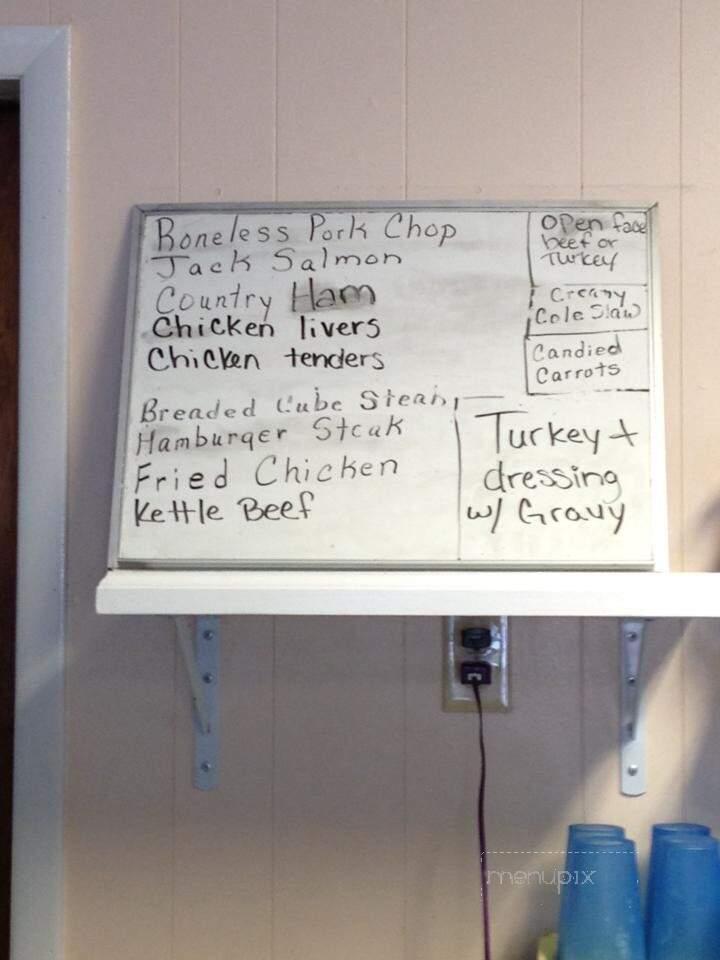 Boneless Pork Chop
Jack Salmon
Country Ham
Chicken livers
Chicken tenders
Breaded Cube Steak
Hamburger Steak
Fried Chicken
Kettle Beef
Open face
beef or
Turkey
Creamy
Cole Slaw
Candied
Carrots
Turkey +
dressing
w/ Gravy
menupix